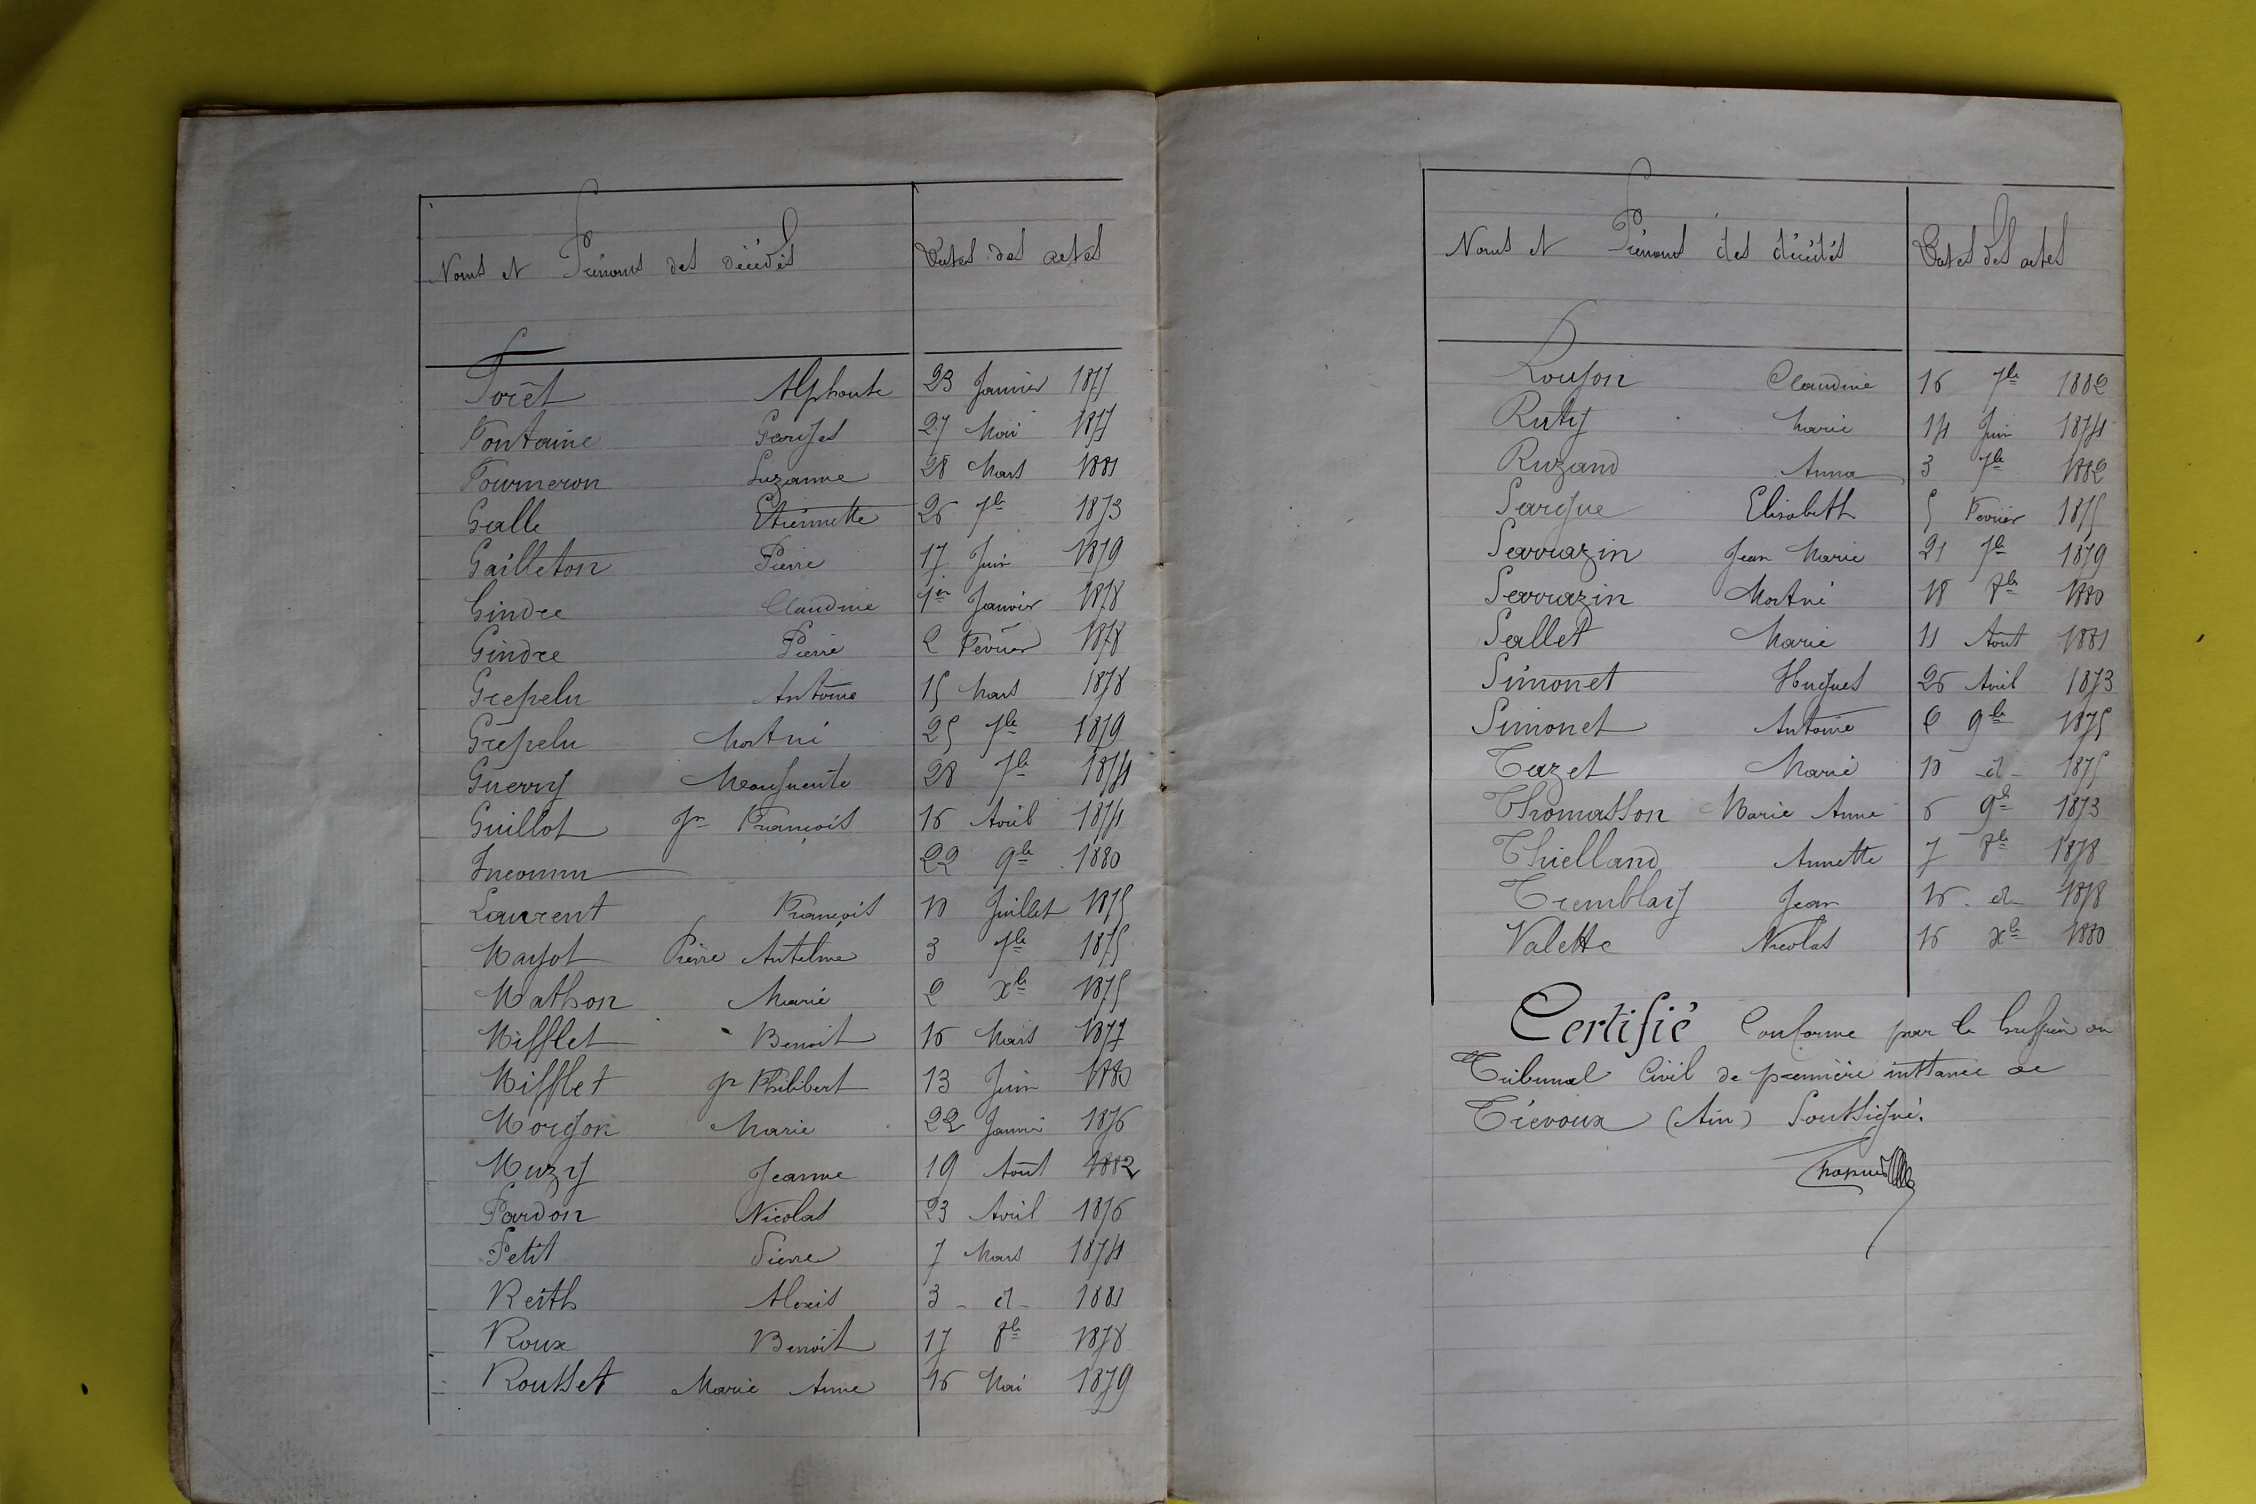 Noms et Prénoms des décédés Dates des actes
Forêt Alphonse 23 Janvier 1877
Fontaine Georges 27 Mai 1877
Fourneron Suzanne 28 Mars 1881
Galle Etiennette 26 7bre 1873
Gailleton Pierre 17 Juin 1879
Gindre Claudine 1er Janvier 1878
Gindre Pierre 2 Février 1878
Grepelu Antoine 15 Mars 1878
Grépelu Mort né 25 7bre 1879
Guerry Marguerite 28 7bre 1874
Guillot Jn François 16 Avril 1874
Inconnu 22 9bre 1880
Laurent François 10 Juillet 1875
Mayot Pierre Antelme 3 7bre 1875
Mathon Marie 2 Xbre 1875
Mifflet Benoit 16 Mars 1877
Mifflet Jn Philibert 13 Juin 1880
Morgon Marie 22 Janvier 1876
Muzy Jeanne 19 Août 1882
Pardon Nicolas 23 Avril 1876
Petit Pierre 7 Mars 1874
Reith Alexis 3 - d - 1881
Roux Benoît 17 8bre 1878
Rousset Marie Anne 16 Mai 1879
Noms et Prénoms des décédés Dates des actes
Roujon Claudine 16 7bre 1882
Ruty Marie 14 Juin 1874
Ruzand Anna 3 7bre 1882
Sargue Elisabeth 5 Février 1875
Sarrazin Jean Marie 21 7bre 1879
Sarrazin Mort né 18 8bre 1880
Sallet Marie 11 Août 1881
Simonet Hugues 26 Avril 1873
Simonet Antoine 2 9bre 1875
Tazet Marie 10 - d - 1875
Thomasson Marie Anne 6 9bre 1873
Thielland Annette 7 8bre 1878
Tremblay Jean 16 - d - 1878
Valette Nicolas 16 Xbre 1880
Certifié Conforme par le Greffier au
Tribunal Civil de première instance de
Trévoux (Ain) Soussigné.